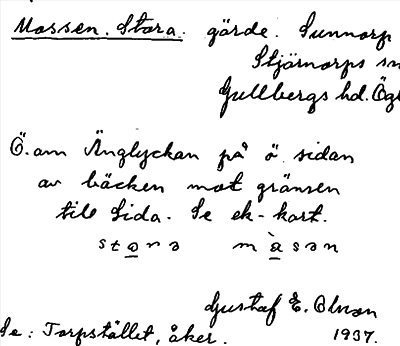 Mossen. Stora. gärde. Sunnorp
Stjärnorps sn
Gullbergs hd. Ögl
Ö. om Änglyckan på ö. sidan
av bäcken mot gränsen
till Lida. Se ek-kart.
stɷrə mὰsən
Gustaf E. Olsson
1937.
Se: Torpstället, åker.